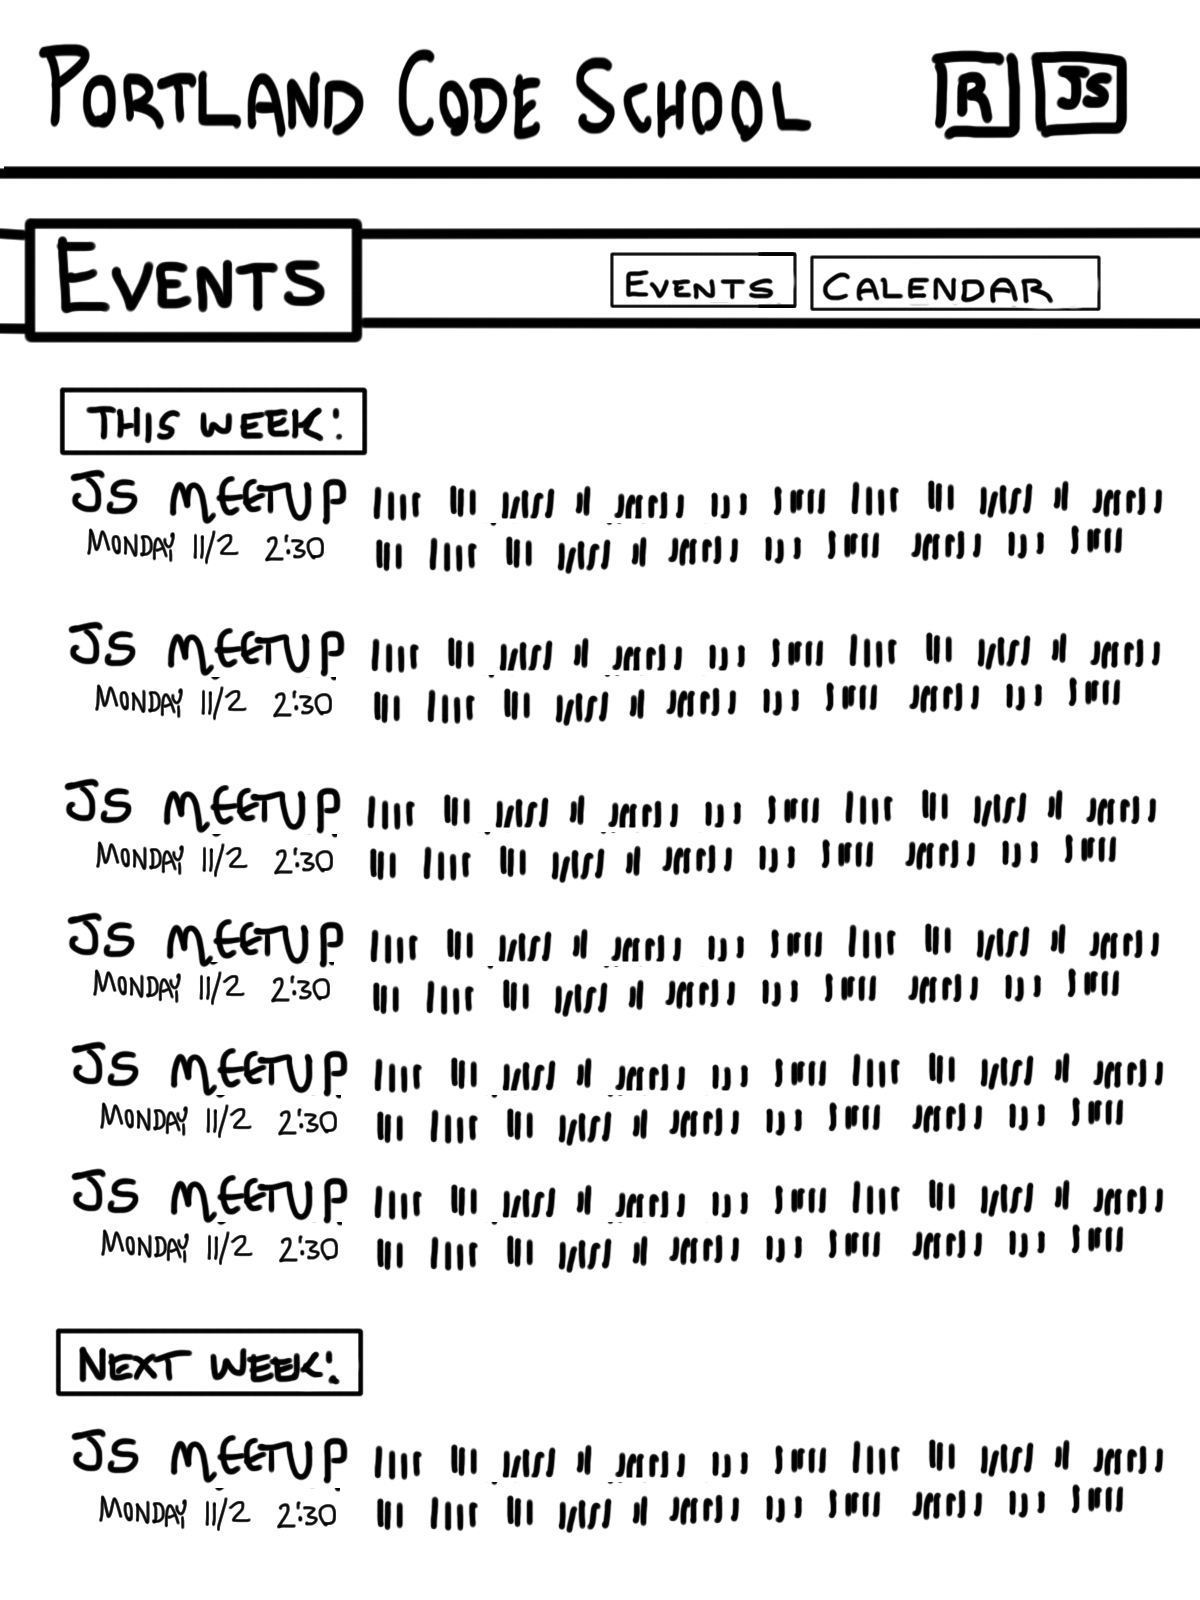 PORTLAND CODE SCHOOL R JS
EVENTS EVENTS CALENDAR
THIS WEEK:
JS MEETUP
MONDAY 11/2 2:30
JS MEETUP
MONDAY 11/2 2:30
JS MEETUP
MONDAY 11/2 2:30
JS MEETUP
MONDAY 11/2 2:30
JS MEETUP
MONDAY 11/2 2:30
JS MEETUP
MONDAY 11/2 2:30
NEXT WEEK:
JS MEETUP
MONDAY 11/2 2:30